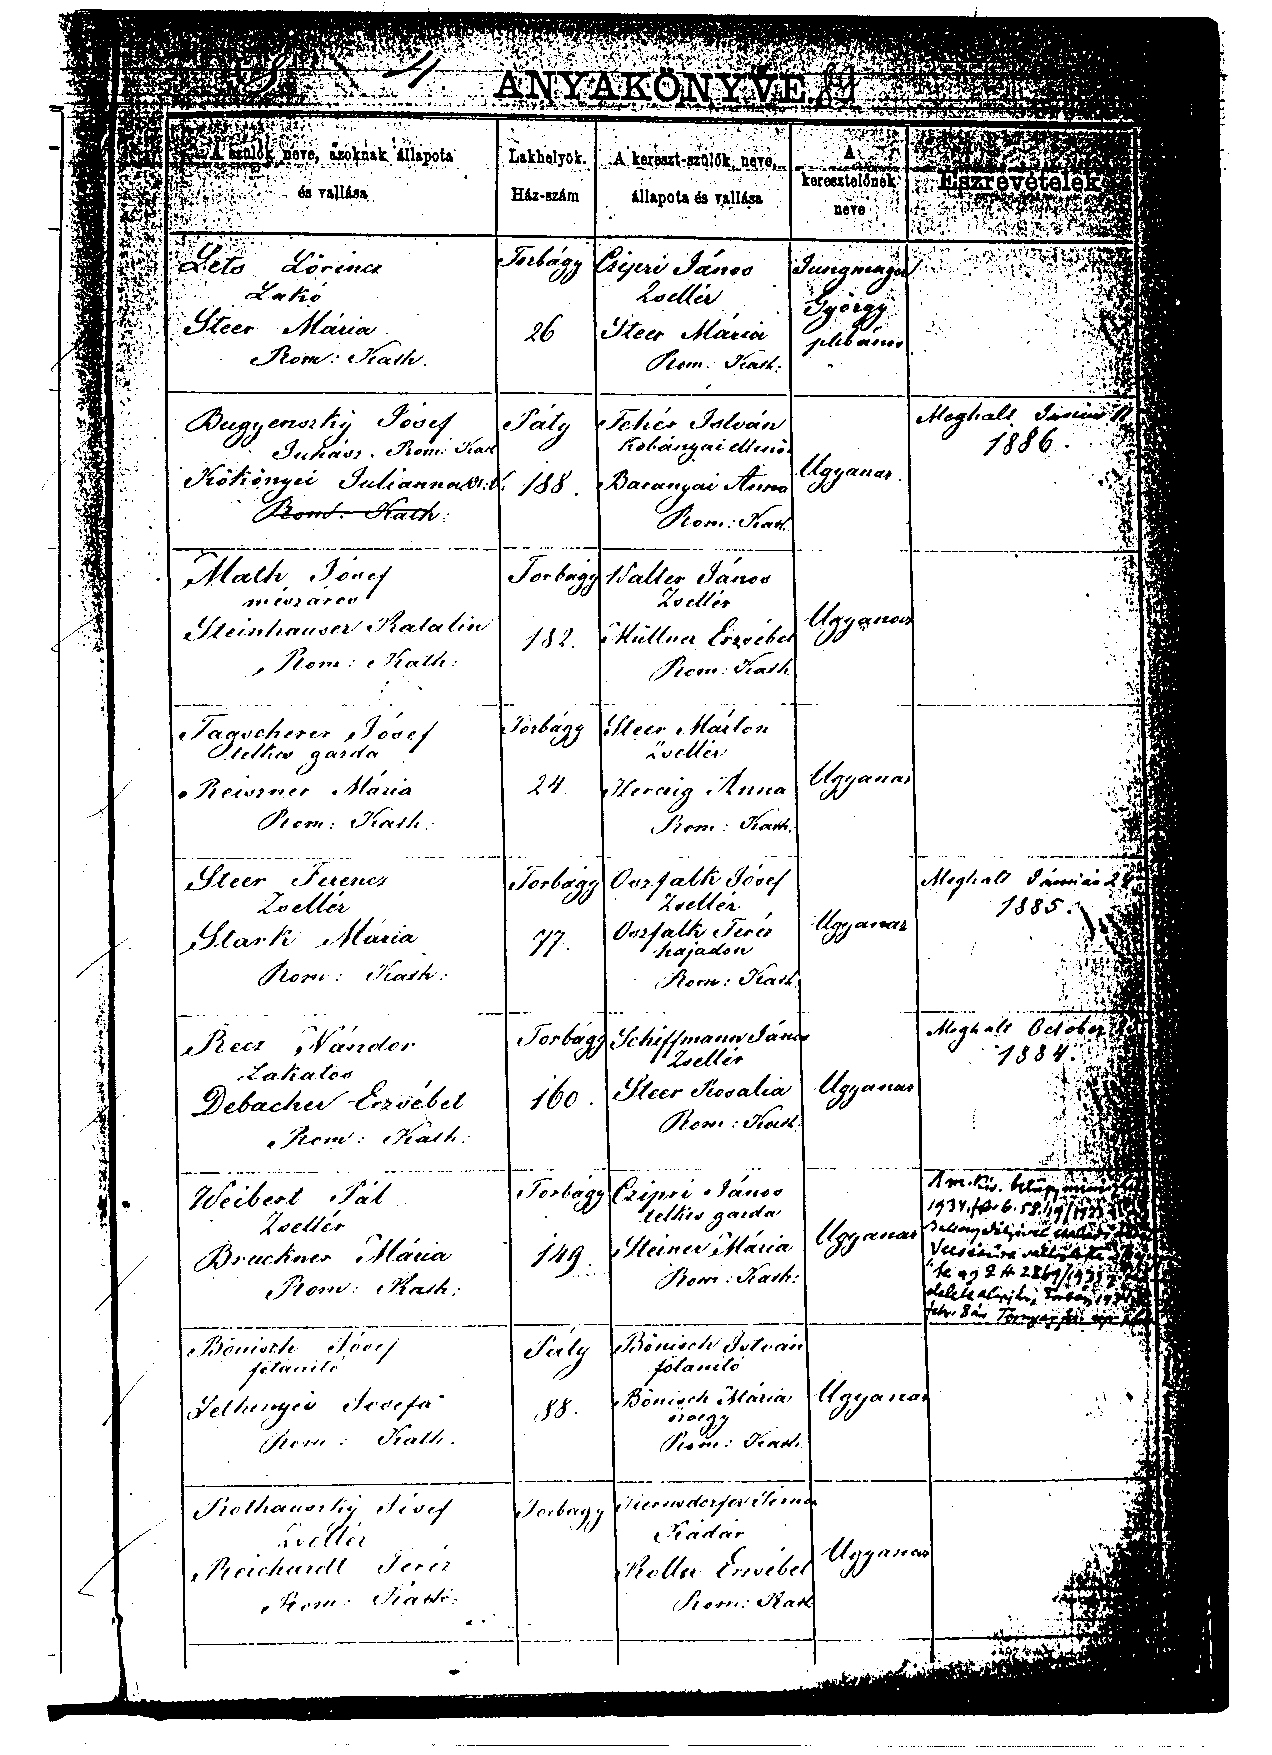 ANYAKÖNYVE.
A szülők neve, azoknak állapota
és vallása
Lakhelyök.
Ház-szám
A kereszt-szülők neve,
állapota és vallása
A
keresztelőnek
neve
Észrevételek
Lets Lörincz
Lakó
Steer Mária
Rom: Kath.
Torbágy
26
Czipri János
Zsellér
Steer Mária
Rom: Kath:
György
plébános
Bugyenszky József
Juhász. Rom: Kat
Kökönyei Julianna
Rom: Kath:
Páty
188.
Fehér István
Kőbányai
Baranyai Anna
Rom: Kath.
Ugyanaz.
Meghalt
1886.
Math József
mészáros
Steinhauser Katalin
Rom: Kath:
Torbágy
182.
Walter János
Zsellér
Müllner Erzsébet
Rom: Kath
Ugyanaz
Tagscherer József
telkes gazda
Reiszner Mária
Rom: Kath:
Torbágy
24.
Steer Márton
Zsellér
Herczig Anna
Rom: Kath.
Ugyanaz
Steer Ferencz
Zsellér
Stark Mária
Rom: Kath:
Torbágy
77.
Oszfalk József
Zsellér
Oszfalk Teréz
hajadon
Rom: Kath.
Ugyanaz
Meghalt Január 24
1885.
Recz Nándor
Lakatos
Debacher Erzsébet
Rom: Kath:
Torbágy
160.
Schiffmann János
Zsellér
Steer Rosalia
Rom: Kath.
Ugyanaz
Meghalt October
1884.
Weibert Pál
Zsellér
Bruckner Mária
Rom: Kath:
Torbágy
149.
Czipri János
telkes gazda
Steiner Mária
Rom: Kath:
Ugyanaz
A m. kir.
1934.
Bönisch József
főtanító
Josefa
Rom: Kath.
Páty
88.
Bönisch István
főtanító
Bönisch Mária
özvegy
Rom: Kath.
Ugyanaz
Rothauszky József
Zsellér
Reichardt Teréz
Rom: Kath:
Torbágy
Kádár
Erzsébet
Rom: Kath
Ugyanaz